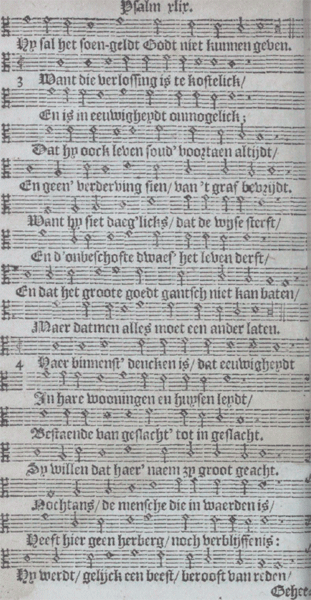 Psalm xlix.
Hy sal het soen-geldt Godt niet kunnen geven.
3 Want die verlossing is te kostelick/
En is in eeuwigheydt onmogelick;
Dat hy oock leven soud' voortaen altijdt/
En geen' verderving sien/ van 't graf bevrydt.
Want hy siet daeg'licks/ dat de wyse sterft/
En d'onbeschofte dwaes' het leven derft/
En dat het groote goedt gantsch niet kan baten/
Maer datmen alles moet een ander laten.
4 Haer binnenst' dencken is/ dat eeuwigheydt
In hare wooningen en huysen leydt/
Bestaende van geslacht' tot in geslacht.
Sy willen dat haer' naem zy groot geacht.
Nochtans/ de mensche die in waerden is/
Heeft hier geen herberg/ noch verblijffenis:
Hy werdt/ gelijck een beest/ berooft van reden/
Gehee-